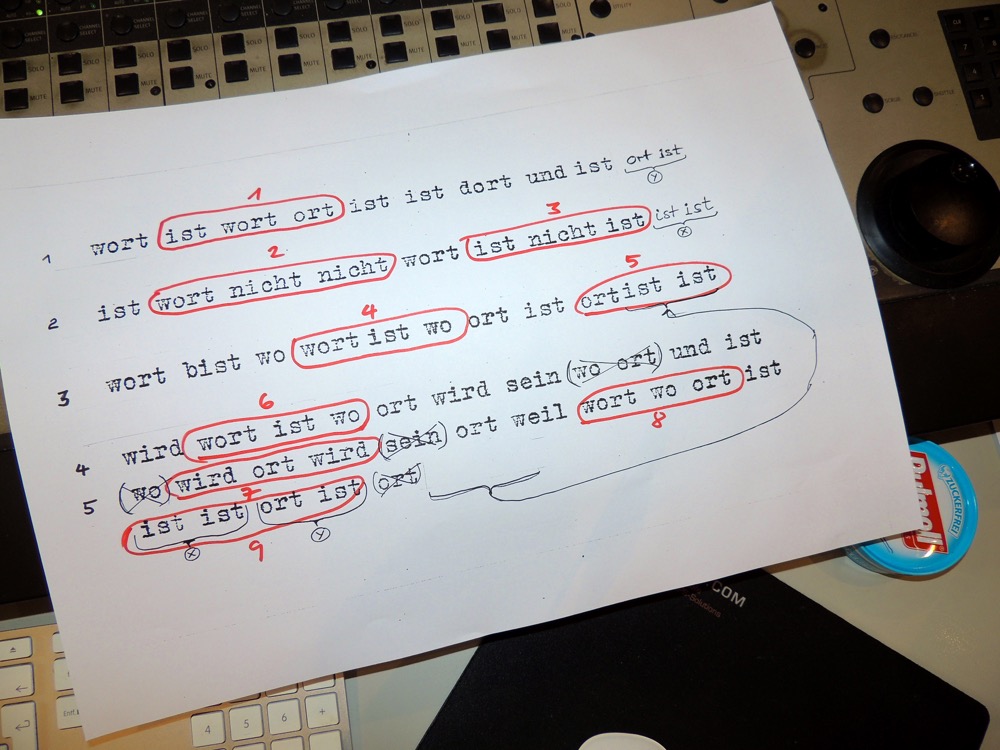 SOLO SOLO SOLO SOLO SOLO
MUTE MUTE MUTE MUTE MUTE MUTE MUTE
1
1 wort ist wort ort ist ist dort und ist ort ist
Y
2 3
2 ist wort nicht nicht wort ist nicht ist ist ist
X
4 5
3 wort bist wo wort ist wo ort ist ort ist ist
6
4 wird wort ist wo ort wird sein (wo ort) und ist
5 (wo) wird ort wird (sein) ort weil wort wo ort ist
7 8
ist ist ort ist (ort)
X 9 Y
ZUCKERFREI
Pulmoll
.COM
-Solutions
Entf
4 5 6 +